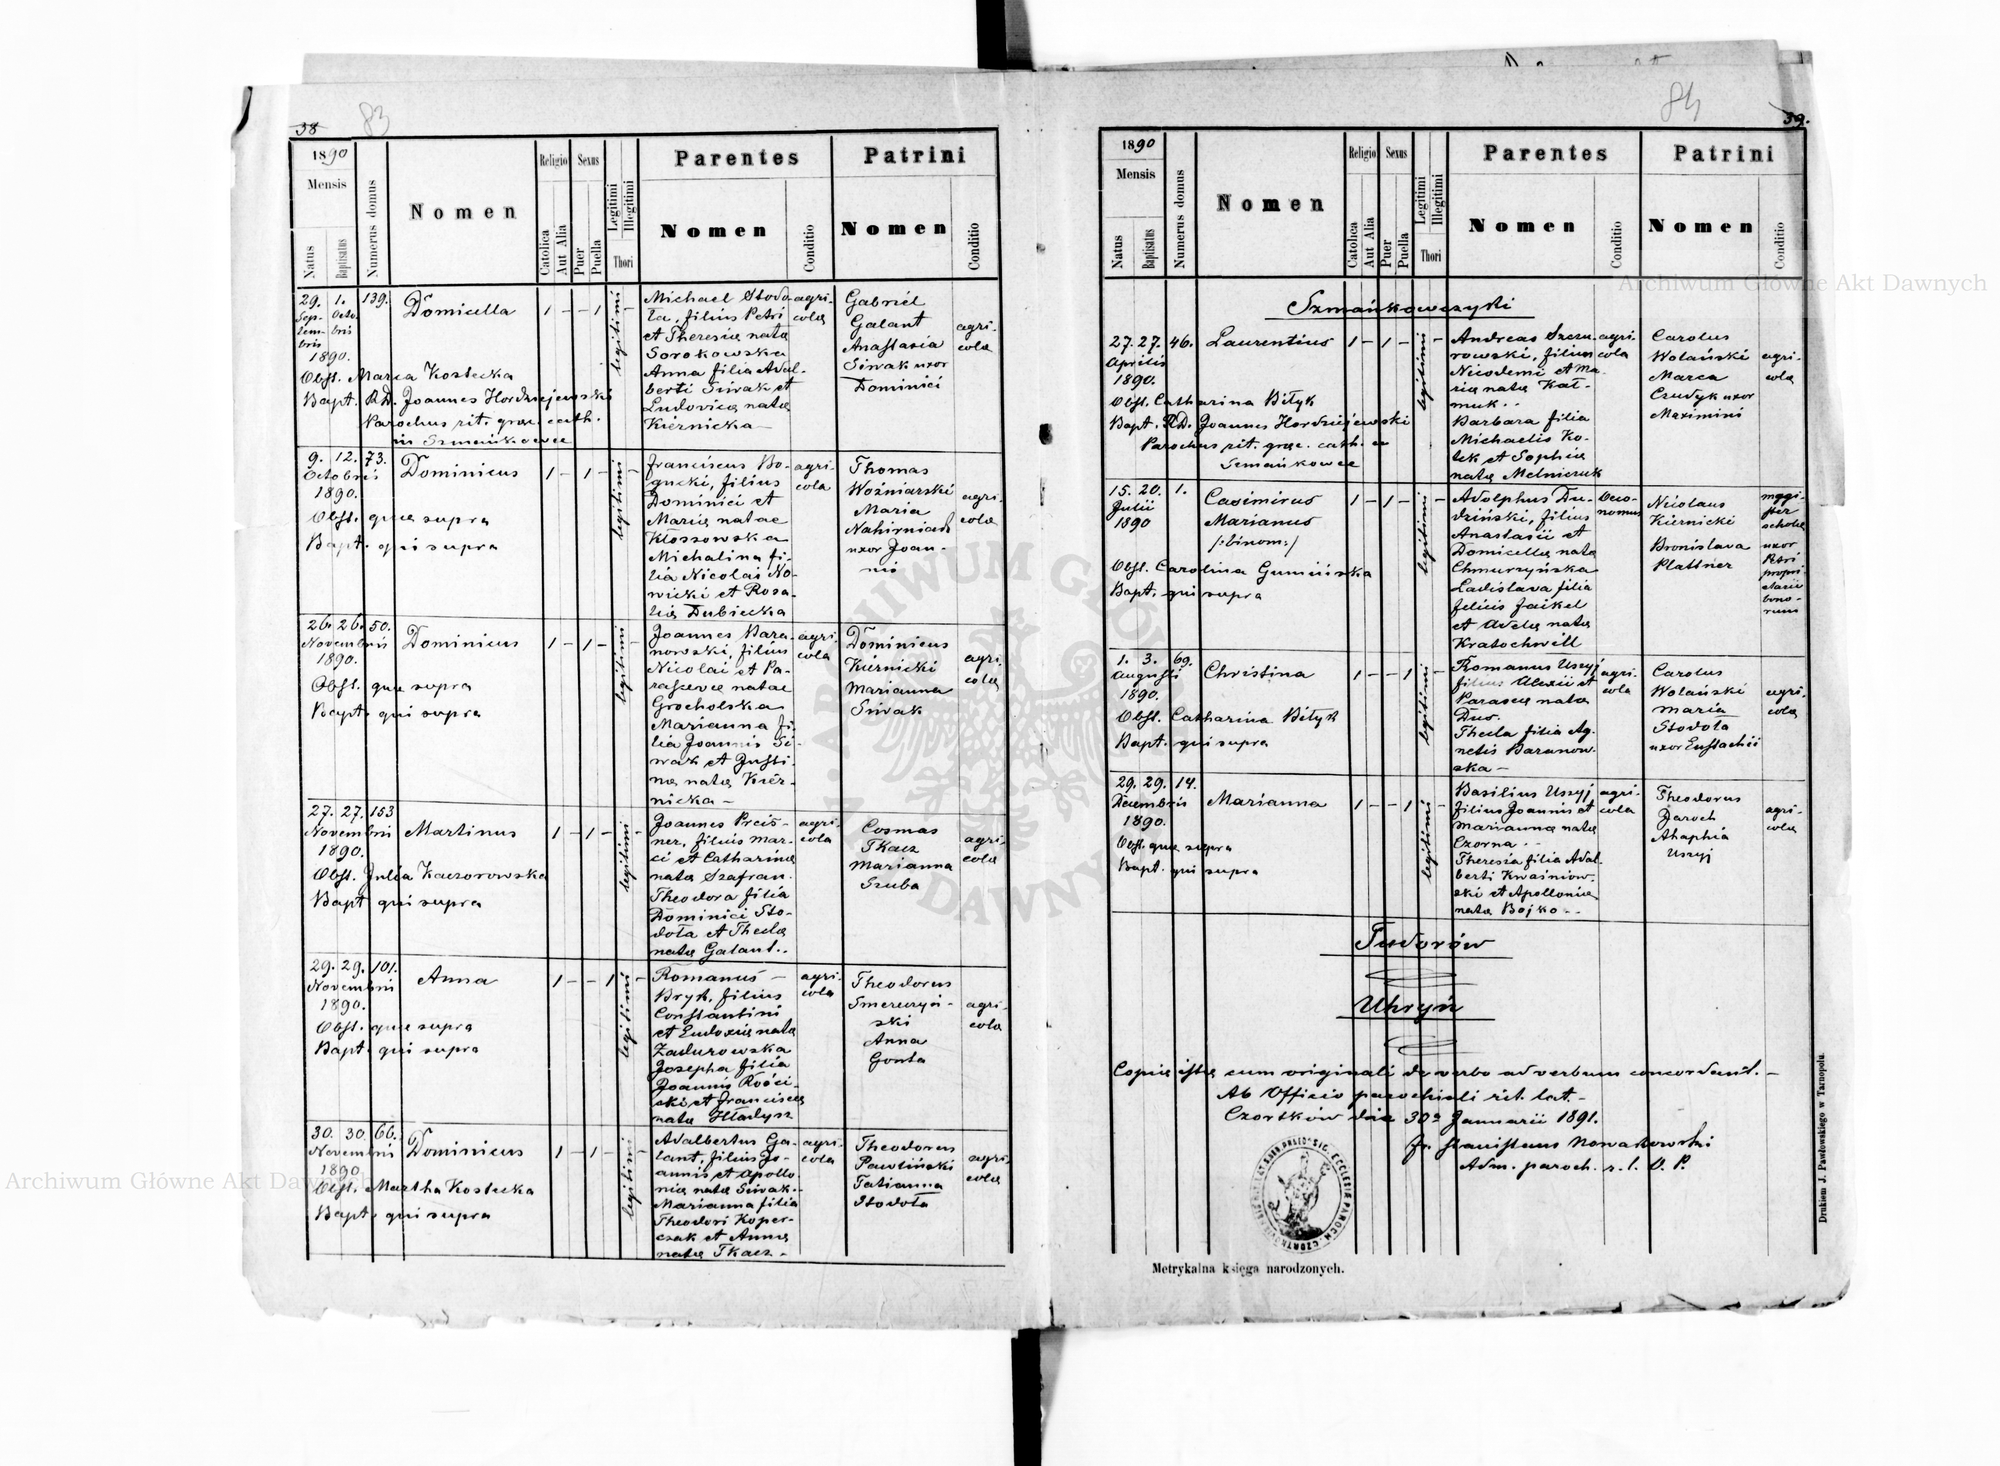 38
83
1890
Mensis
Natus
Baptisatus
Numerus domus
Nomen
Religio
Catholica
Aut Alia
Sexus
Puer
Puella
Legitimi
Illegitimi
Thori
Parentes
Nomen
Conditio
Patrini
Nomen
Conditio
29. 1. 139.
Sep- Octo-
tem- bris
bris
1890.
Domicella
1 – – 1 –
legitimi
Michael Stodo-
ła, filius Petri
et Theresia nata
Sorokowska
Anna filia Adal-
berti Siwak et
Ludovica nata
Kiernicka –
agri-
cola
Gabriel
Galant
Anastasia
Siwak uxor
Dominici
agri-
cola
Obst. Maria Kostecka
Bapt. R.D. Joannes Hordziejewski
Parochus rit. graec. cath.
in Szmańkowce
9. 12. 73.
Octobris
1890.
Dominicus
1 – 1 –
legitimi
Franciscus Bo-
gucki, filius
Dominici et
Maria natae
Kłossowska
Michalina fi-
lia Nicolai No-
wicki et Rosa-
lia Dubiecka
agri-
cola
Thomas
Woźniarski
Maria
Nahirniak
uxor Joan-
nis
agri-
cola
Obst. quae supra
Bapt. qui supra
26. 26. 50.
Novembris
1890.
Dominicus
1 – 1 –
legitimi
Joannes Bara-
nowski, filius
Nicolai et Pa-
rascevae natae
Grocholska
Marianna fi-
lia Joannis Si-
wak et Justi-
na nata Kier-
nicka –
agri-
cola
Dominicus
Kiernicki
Marianna
Siwak
agri-
cola
Obst. quae supra
Bapt. qui supra
27. 27. 153
Novembris
1890.
Martinus
1 – 1 –
legitimi
Joannes Preis-
ner, filius Mar-
ci et Catharina
nata Szafran.
Theodora filia
Dominici Sto-
doła et Thecla
nata Galant.
agri-
cola
Cosmas
Tkacz
Marianna
Szuba
agri-
cola
Obst. Julia Kaczorowska
Bapt. qui supra
29. 29. 101.
Novembris
1890.
Anna
1 – – 1 –
legitimi
Romanus –
Bryk, filius
Constantini
et Eudoxia nata
Zadurowska
Josepha filia
Joannis Rości-
ski et Francisca
nata Hładysz
agri-
cola
Theodorus
Smereczyń-
ski
Anna
Gonta
agri-
cola
Obst. quae supra
Bapt. qui supra
30. 30. 66.
Novembris
1890.
Dominicus
1 – 1 – –
legitimi
Adalbertus Ga-
lant, filius Jo-
annis et Apollo-
nia nata Siwak.
Marianna filia
Theodori Koper-
czak et Anna
nata Tkacz –
agri-
cola
Theodorus
Pawliński
Tatianna
Stodoła
agri-
cola
Obst. Martha Kostecka
Bapt. qui supra
84
39.
1890
Mensis
Natus
Baptisatus
Numerus domus
Nomen
Religio
Catolica
Aut Alia
Sexus
Puer
Puella
Legitimi
Illegitimi
Thori
Parentes
Nomen
Conditio
Patrini
Nomen
Conditio
Szmańkowczyki
27. 27. 46.
Aprilis
1890.
Laurentius
1 – 1 – –
legitimi
Andreas Szczu-
rowski, filius
Nicodemi et Ma-
ria nata Kał-
muk.
Barbara filia
Michaelis Ko-
lek et Sophia
nata Melniczuk
agri-
cola
Carolus
Wolański
Maria
Czudyk uxor
Maximini
agri-
cola
Obst. Catharina Biłyk
Bapt. R.D. Joannes Hordziejewski
Parochus rit. graec. cath. in
Szmańkowce
15. 20. 1.
Julii
1890
Casimirus
Marianus
/:binom:/
1 – 1 – –
legitimi
Adolphus Du-
dziński, filius
Anastasii et
Domicella nata
Chmurzyńska
Ladislava filia
Felicis Jaikel
et Adela nata
Kratochwill
oeco-
nomus
Nicolaus
Kiernicki
Bronislava
Plattner
magi-
ster
schola
uxor
Petri
propri-
etarii
bono-
rum
Obst. Carolina Gumińska
Bapt. qui supra
1. 3. 69.
Augusti
1890.
Christina
1 – – 1 –
legitimi
Romanus Uszyj
filius Alexii et
Parascea nata
Dus.
Thecla filia Ag-
netis Baranow-
ska –
agri-
cola
Carolus
Wolański
Maria
Stodoła
uxor Eustachii
agri-
cola
Obst. Catharina Biłyk
Bapt. qui supra
29. 29. 14.
Decembris
1890.
Marianna
1 – – 1 –
legitimi
Basilius Uszyj
filius Joannis et
Marianna nata
Czorna
Theresia filia Adal-
berti Kwaśniow-
ski et Apollonia
nata Bojko
agri-
cola
Theodorus
Jaroch
Ahaphia
Uszyj
agri-
cola
Obst. quae supra
Bapt. qui supra
Tudorów
Uhryń
Copia ista cum originali de verbo ad verbum concordant. –
Ab Officio parochiali rit. lat. –
Czortków dia 30a Januarii 1891.
Fr. Stanislaus Nowakowski
Adm. paroch. r. l. O. P.
Metrykalna księga narodzonych.
Drukiem J. Pawłowskiego w Tarnopolu.
Archiwum Główne Akt Dawnych
Archiwum Główne Akt Dawnych
ARCHIWUM GŁÓWNE AKT DAWNYCH